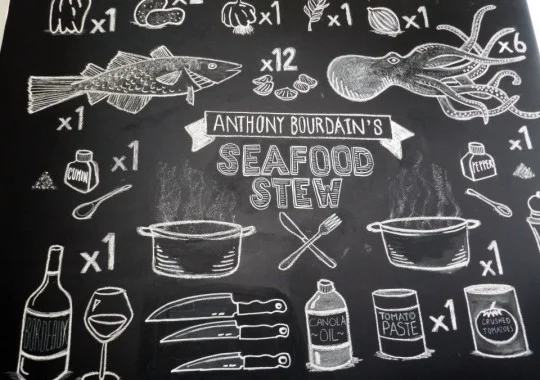 x1
x1
x1
x1
x12
x6
x1
ANTHONY BOURDAIN'S
SEAFOOD
STEW
CUMIN
x1
PEPPER
x1
x1
x1
BORDEAUX
CANOLA
~OIL~
TOMATO
PASTE
x1
CRUSHED
TOMATOES